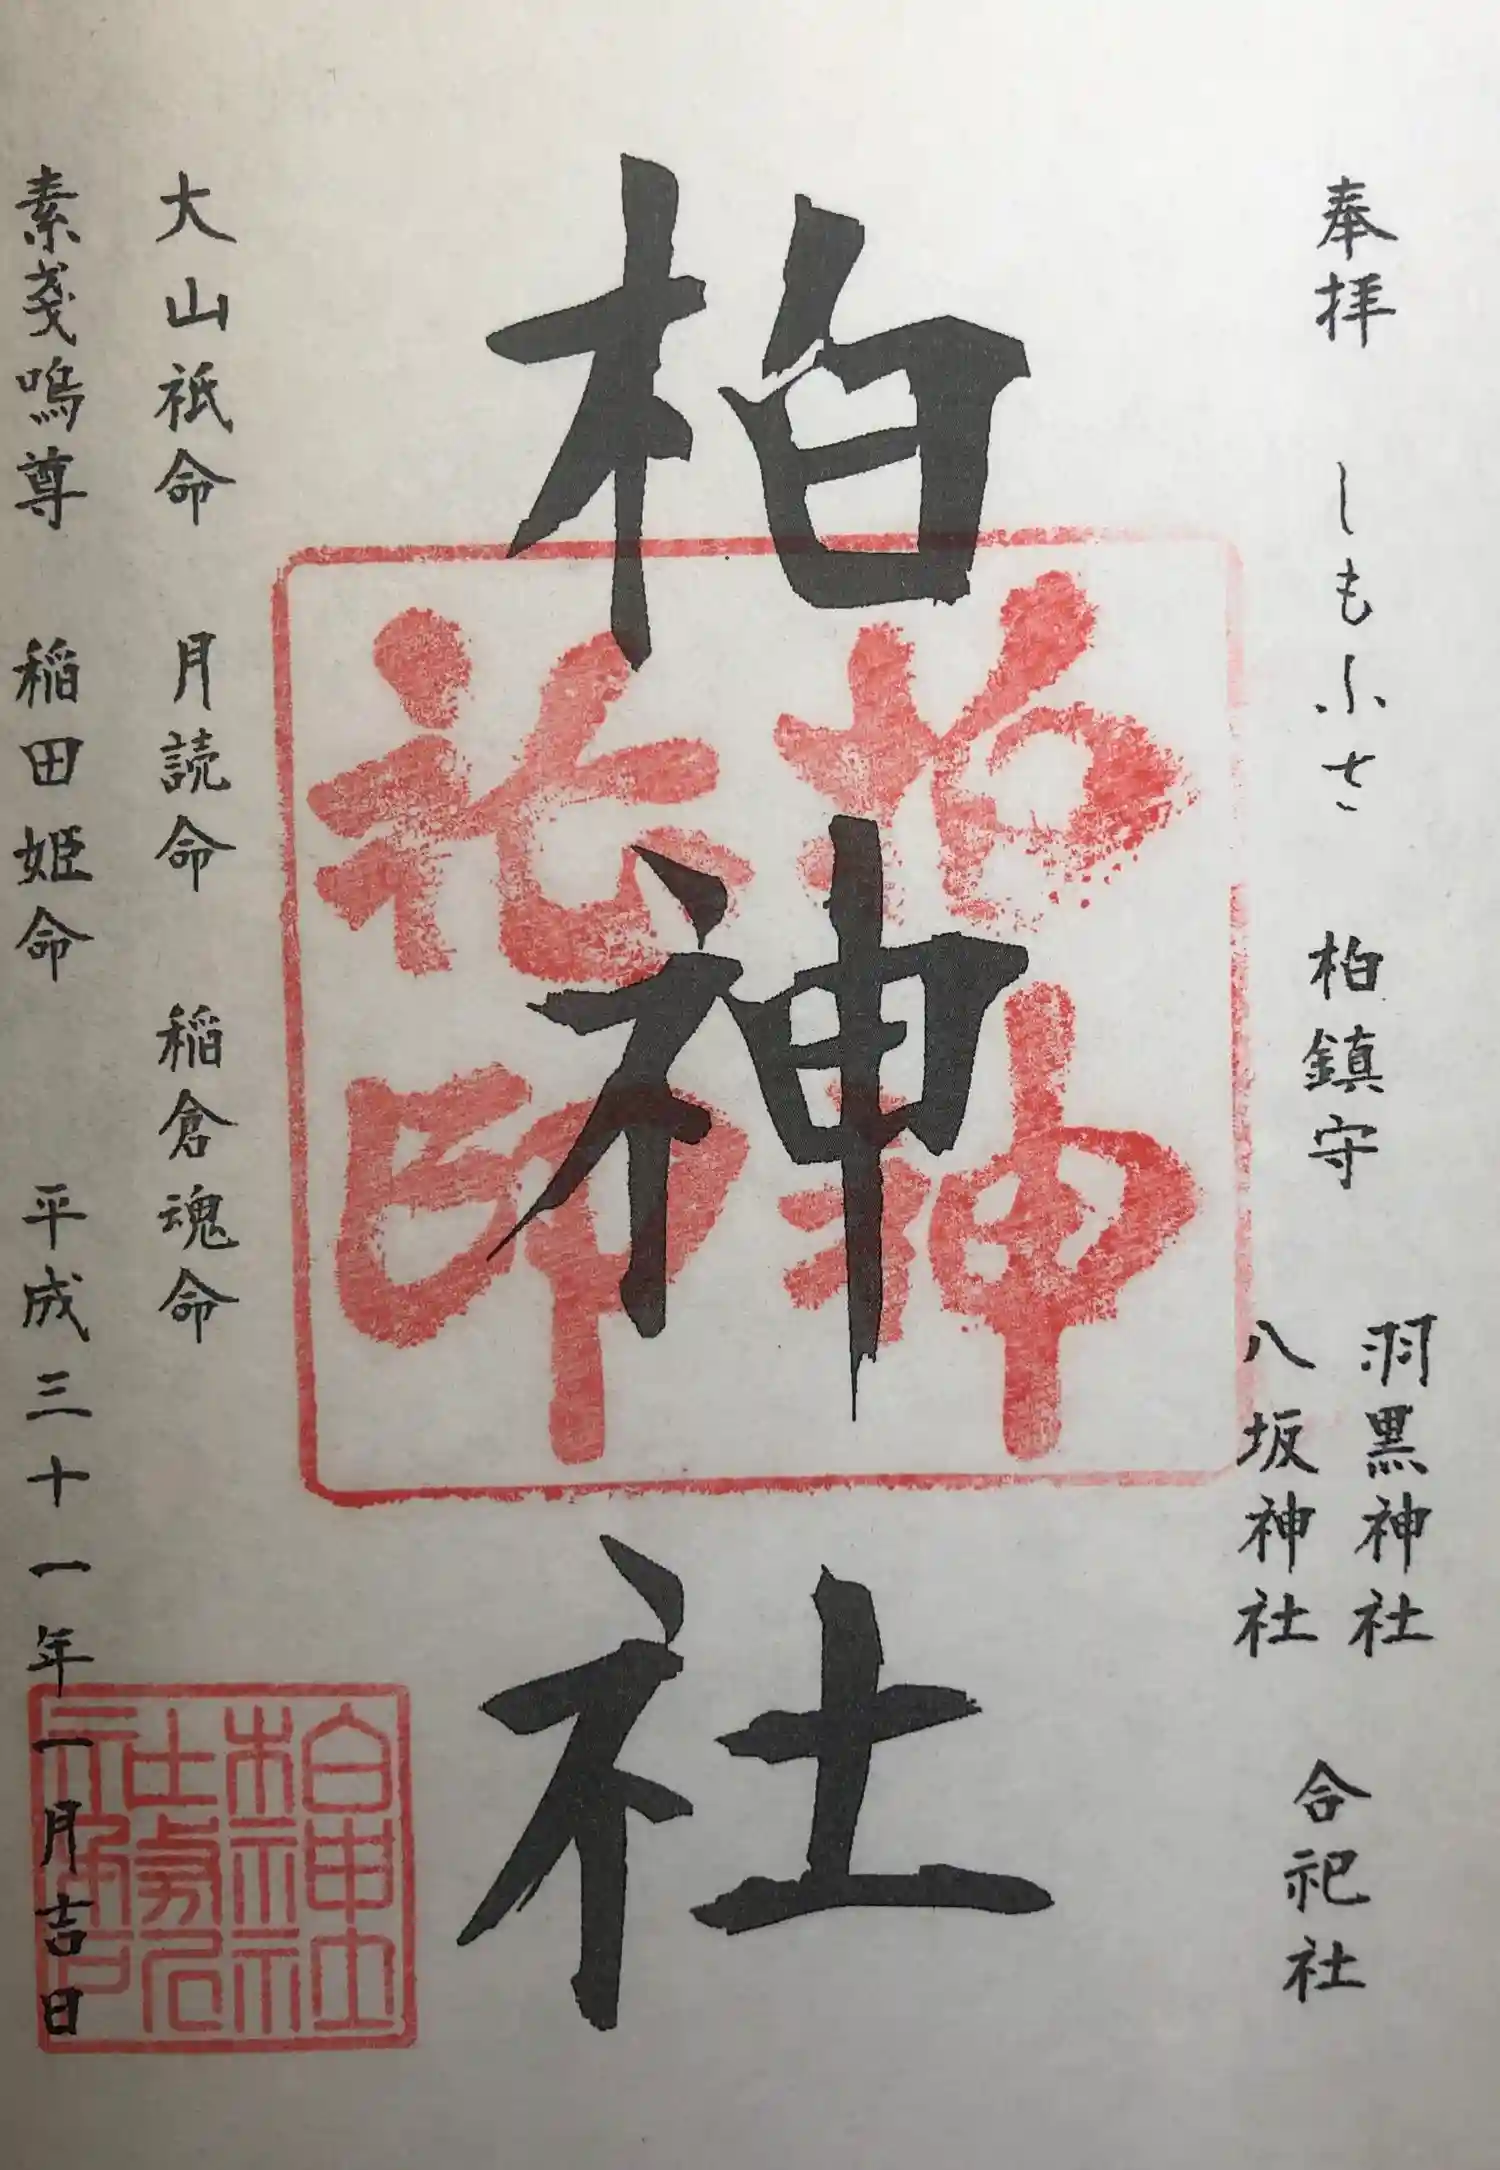 奉拝 しもふさ 柏鎮守
羽黒神社
八坂神社
合祀社
柏神社
柏神社印
大山祇命 月読命 稲倉魂命
素戔嗚尊 稲田姫命 平成三十一年一月吉日